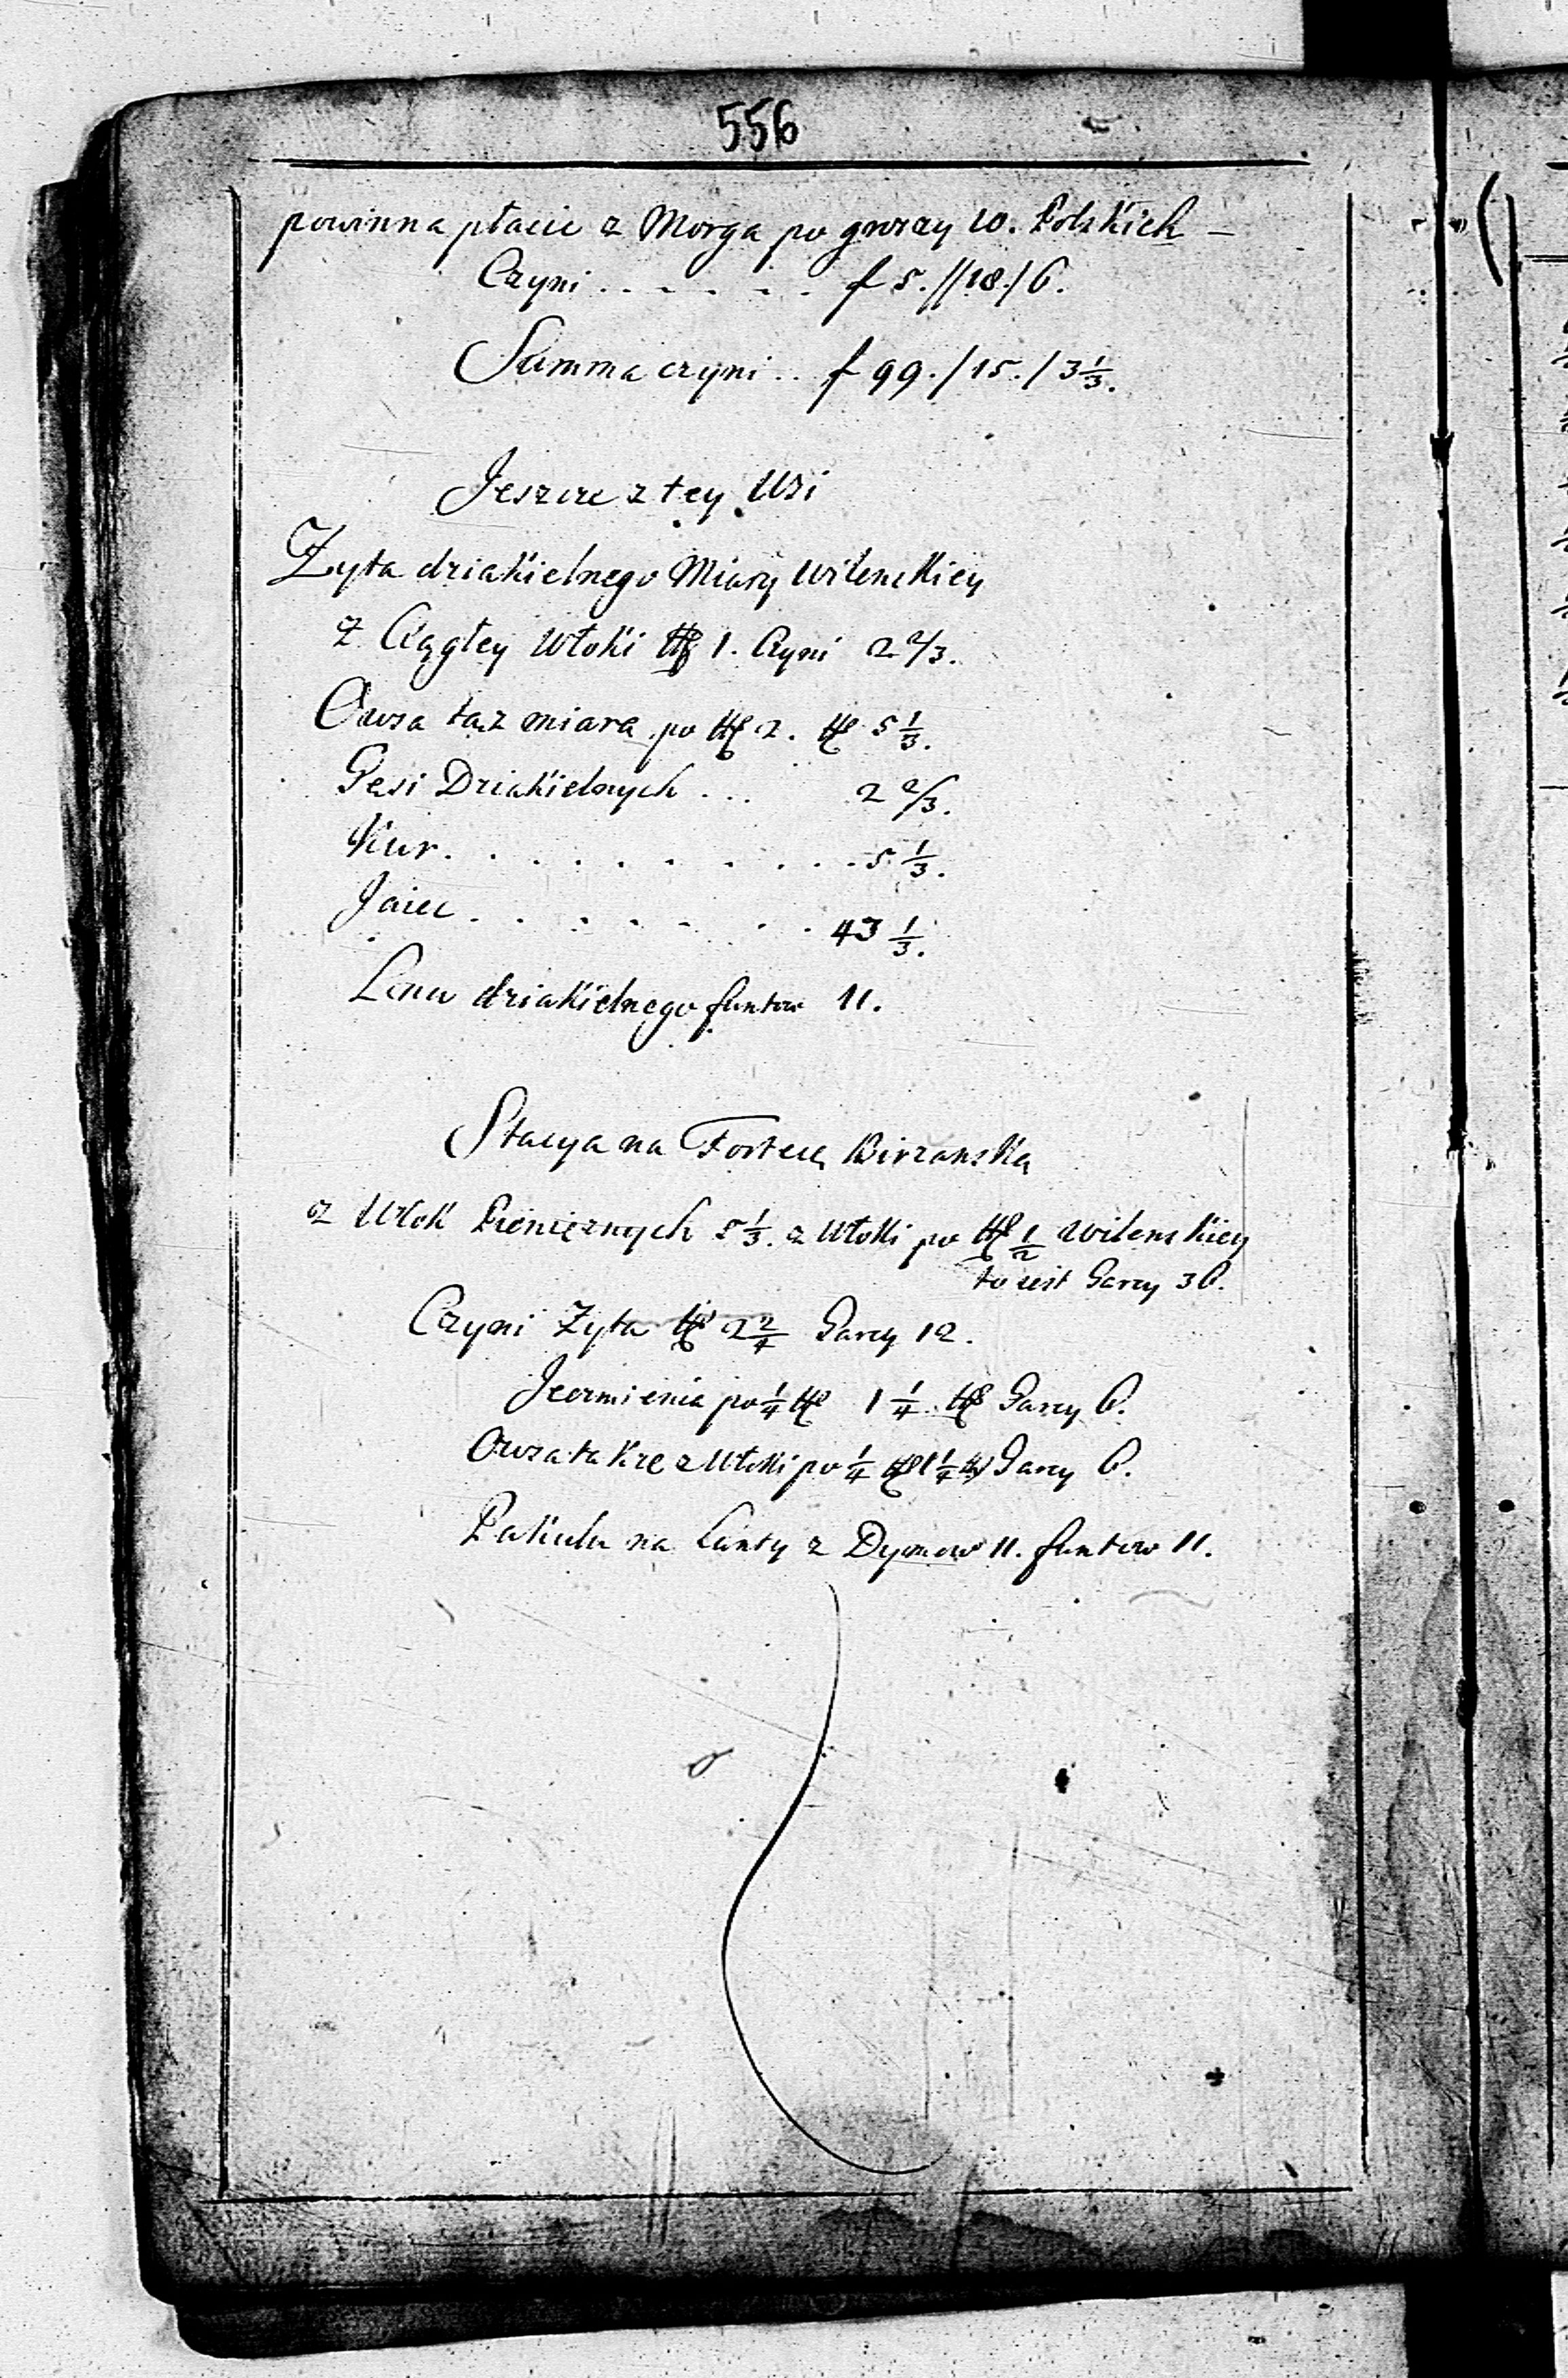 556
powinna płacic z Morga po groszy 10. Polskich –
Czyni . . . . . . f 5.//18./6.
Summa czyni .. f 99./15./3 1/3.
Jeszcze z tey Wsi
Zyta dziakielnego Miary Wilenskiey
z Ciągłey Włoki 1. Czyni 2 2/3.
Owsa tąz miarą po 2. 5 1/3.
Gęsi Dziakielnych . . . 2 2/3.
Kur . . . . . . . . . . 5 1/3.
Jaiec . . . . . . . 43 1/3.
Lnu dziakielnego funtow 11.
Stacya na Fortecę Birzanską
z Włok Pieniężnych 5 1/3. z Włoki po 1/2 Wilenskiey
to iest Garcy 36.
Czyni Zyta 2 2/4 Garcy 12.
Jęczmienia po 1/4 1 1/4. Garcy 6.
Owsa takze z Włoki po 1/4 1 1/4 Garcy 6.
Pakulu na Lunty z Dymow 11. funtow 11.